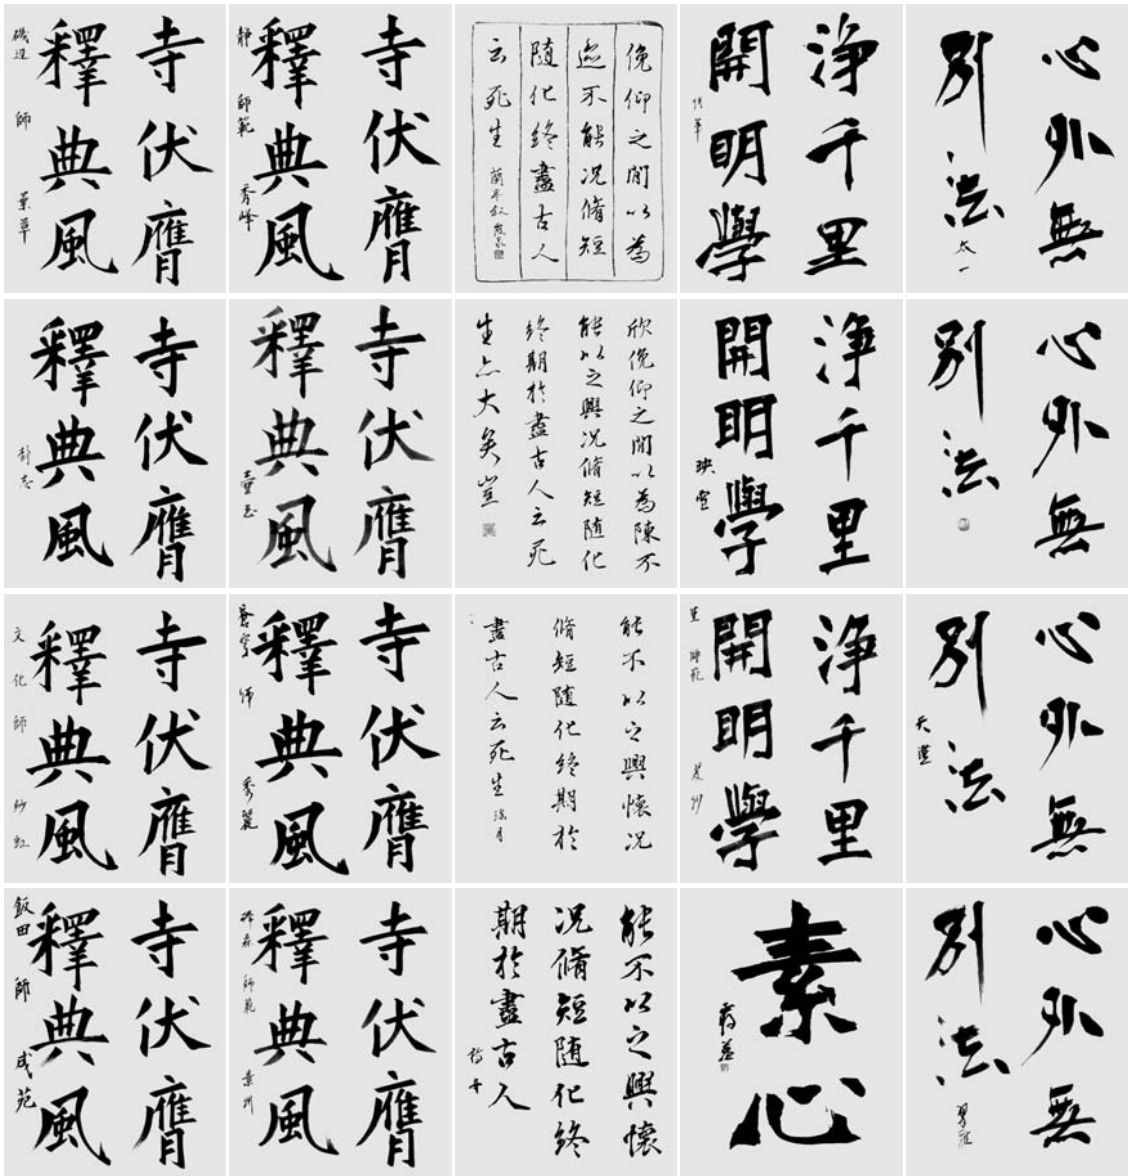 寺伏膺
釋典風
師
寺伏膺
釋典風
静 師範 秀峰
俛仰之閒以為
迹不能況脩短
随化終盡古人
云死生
淨千里
開明學
心外無
別法
太一
寺伏膺
釋典風
寺伏膺
釋典風
欣俛仰之閒以為陳不
能以之興況脩短随化
終期於盡古人云死
生亦大矣豈
淨千里
開明學
心外無
別法
寺伏膺
釋典風
文化 師
寺伏膺
釋典風
師 秀麗
能不以之興懷況
脩短随化終期於
盡古人云死生
淨千里
開明學
心外無
別法
寺伏膺
釋典風
飯田 師 成苑
寺伏膺
釋典風
師範
能不以之興懷
況脩短随化終
期於盡古人
素心
心外無
別法